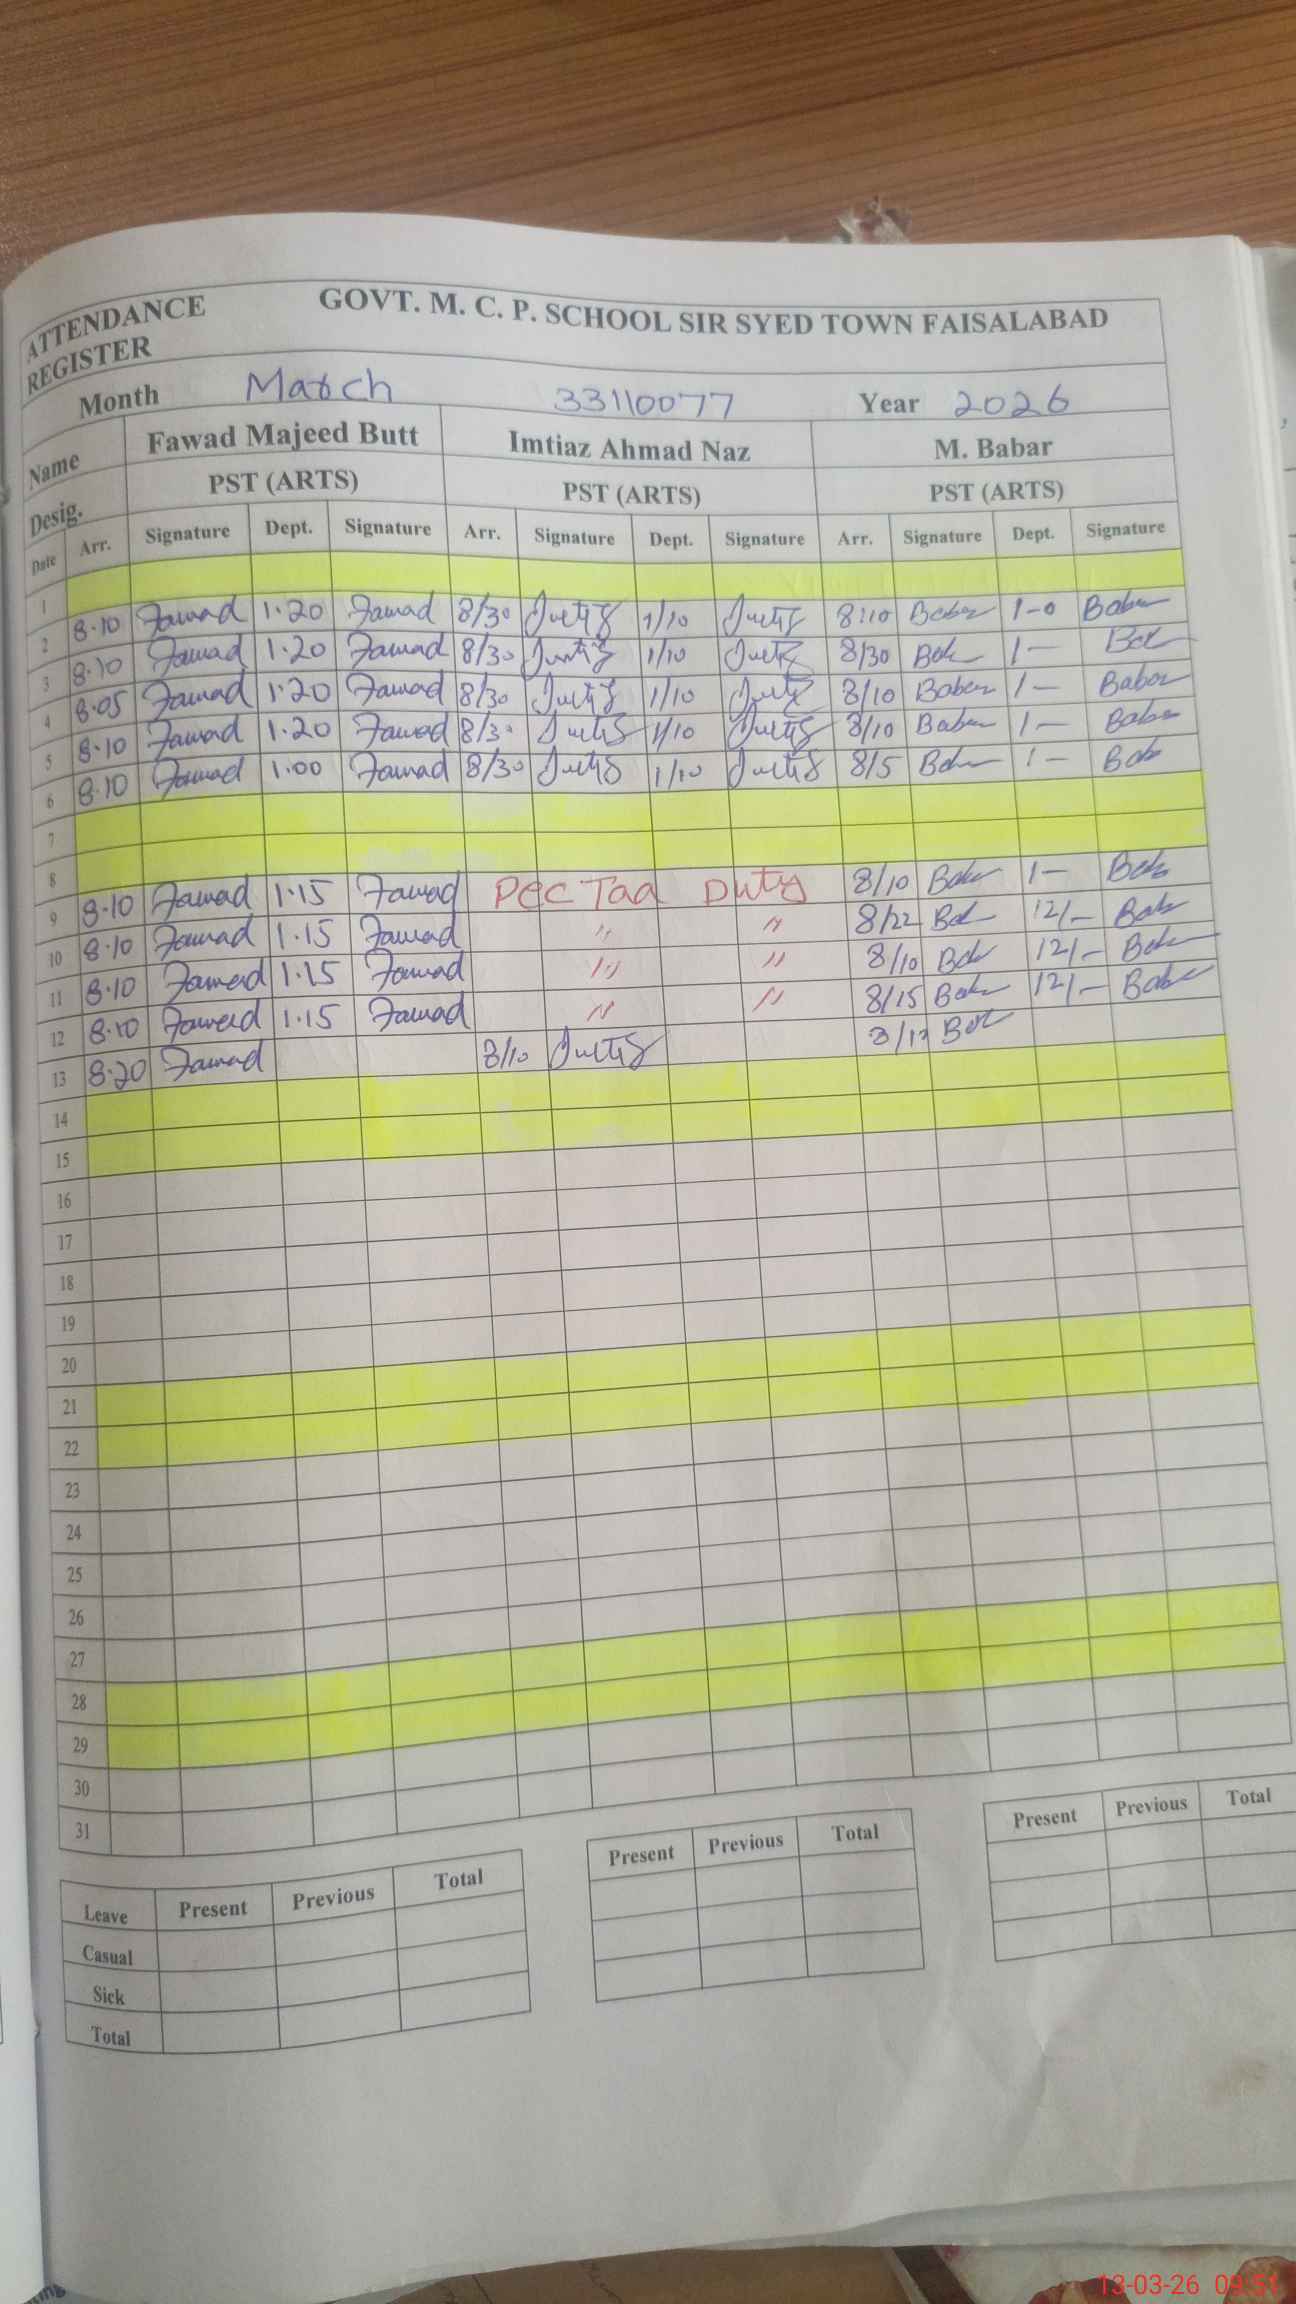 ATTENDANCE REGISTER GOVT. M. C. P. SCHOOL SIR SYED TOWN FAISALABAD
Month March 33110077 Year 2026
Name Fawad Majeed Butt Imtiaz Ahmad Naz M. Babar
Desig. PST (ARTS) PST (ARTS) PST (ARTS)
Date Arr. Signature Dept. Signature Arr. Signature Dept. Signature Arr. Signature Dept. Signature
1
2 8.10 Fawad 1.20 Fawad 8/30 1/10 8:10 Babar 1-0 Babar
3 8.10 Fawad 1.20 Fawad 8/30 1/10 8/30 1-
4 8.05 Fawad 1.20 Fawad 8/30 1/10 8/10 Babar 1- Babar
5 8.10 Fawad 1.20 Fawad 8/30 1/10 8/10 Babar 1- Babar
6 8.10 Fawad 1.00 Fawad 8/30 1/10 8/5 1-
7
8
9 8.10 Fawad 1.15 Fawad PEC Taa Duty 8/10 1-
10 8.10 Fawad 1.15 Fawad " " 8/22 12/-
11 8.10 Fawad 1.15 Fawad " " 8/10 12/-
12 8.10 Fawad 1.15 Fawad " " 8/15 12/-
13 8.20 Fawad 8/10
14
15
16
17
18
19
20
21
22
23
24
25
26
27
28
29
30
31
Leave Present Previous Total Present Previous Total Present Previous Total
Casual
Sick
Total
13-03-26 09:51